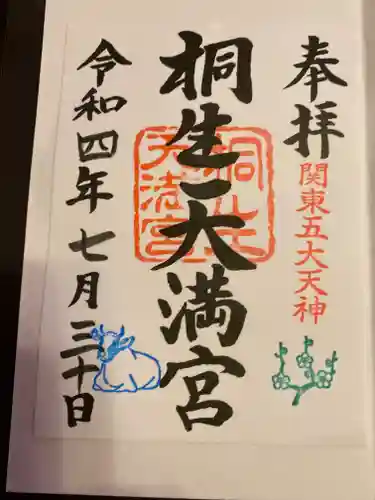 奉拝
関東五大天神
桐生天満宮
桐生天満宮
令和四年七月三十日